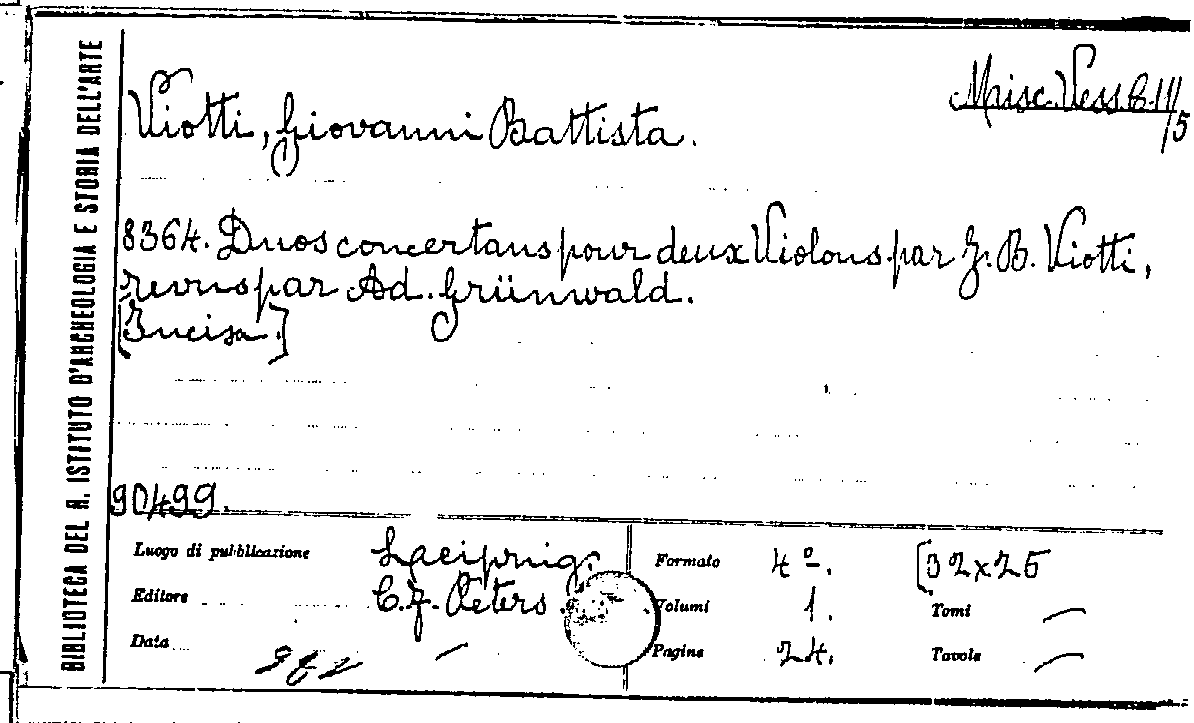 BIBLIOTECA DEL R. ISTITUTO D'ARCHEOLOGIA E STORIA DELL'ARTE
Misc. Vess. B-III/5
Viotti, Giovanni Battista.
8364. Duos concertans pour deux Violons par J. B. Viotti,
revus par Ad. Grünwald.
[Incisa.]
90499.
Luogo di pubblicazione
Editore C. F. Peters.
Data —
Formato 4º. [32x25
Volumi 1. Tomi —
Pagine 24. Tavole —